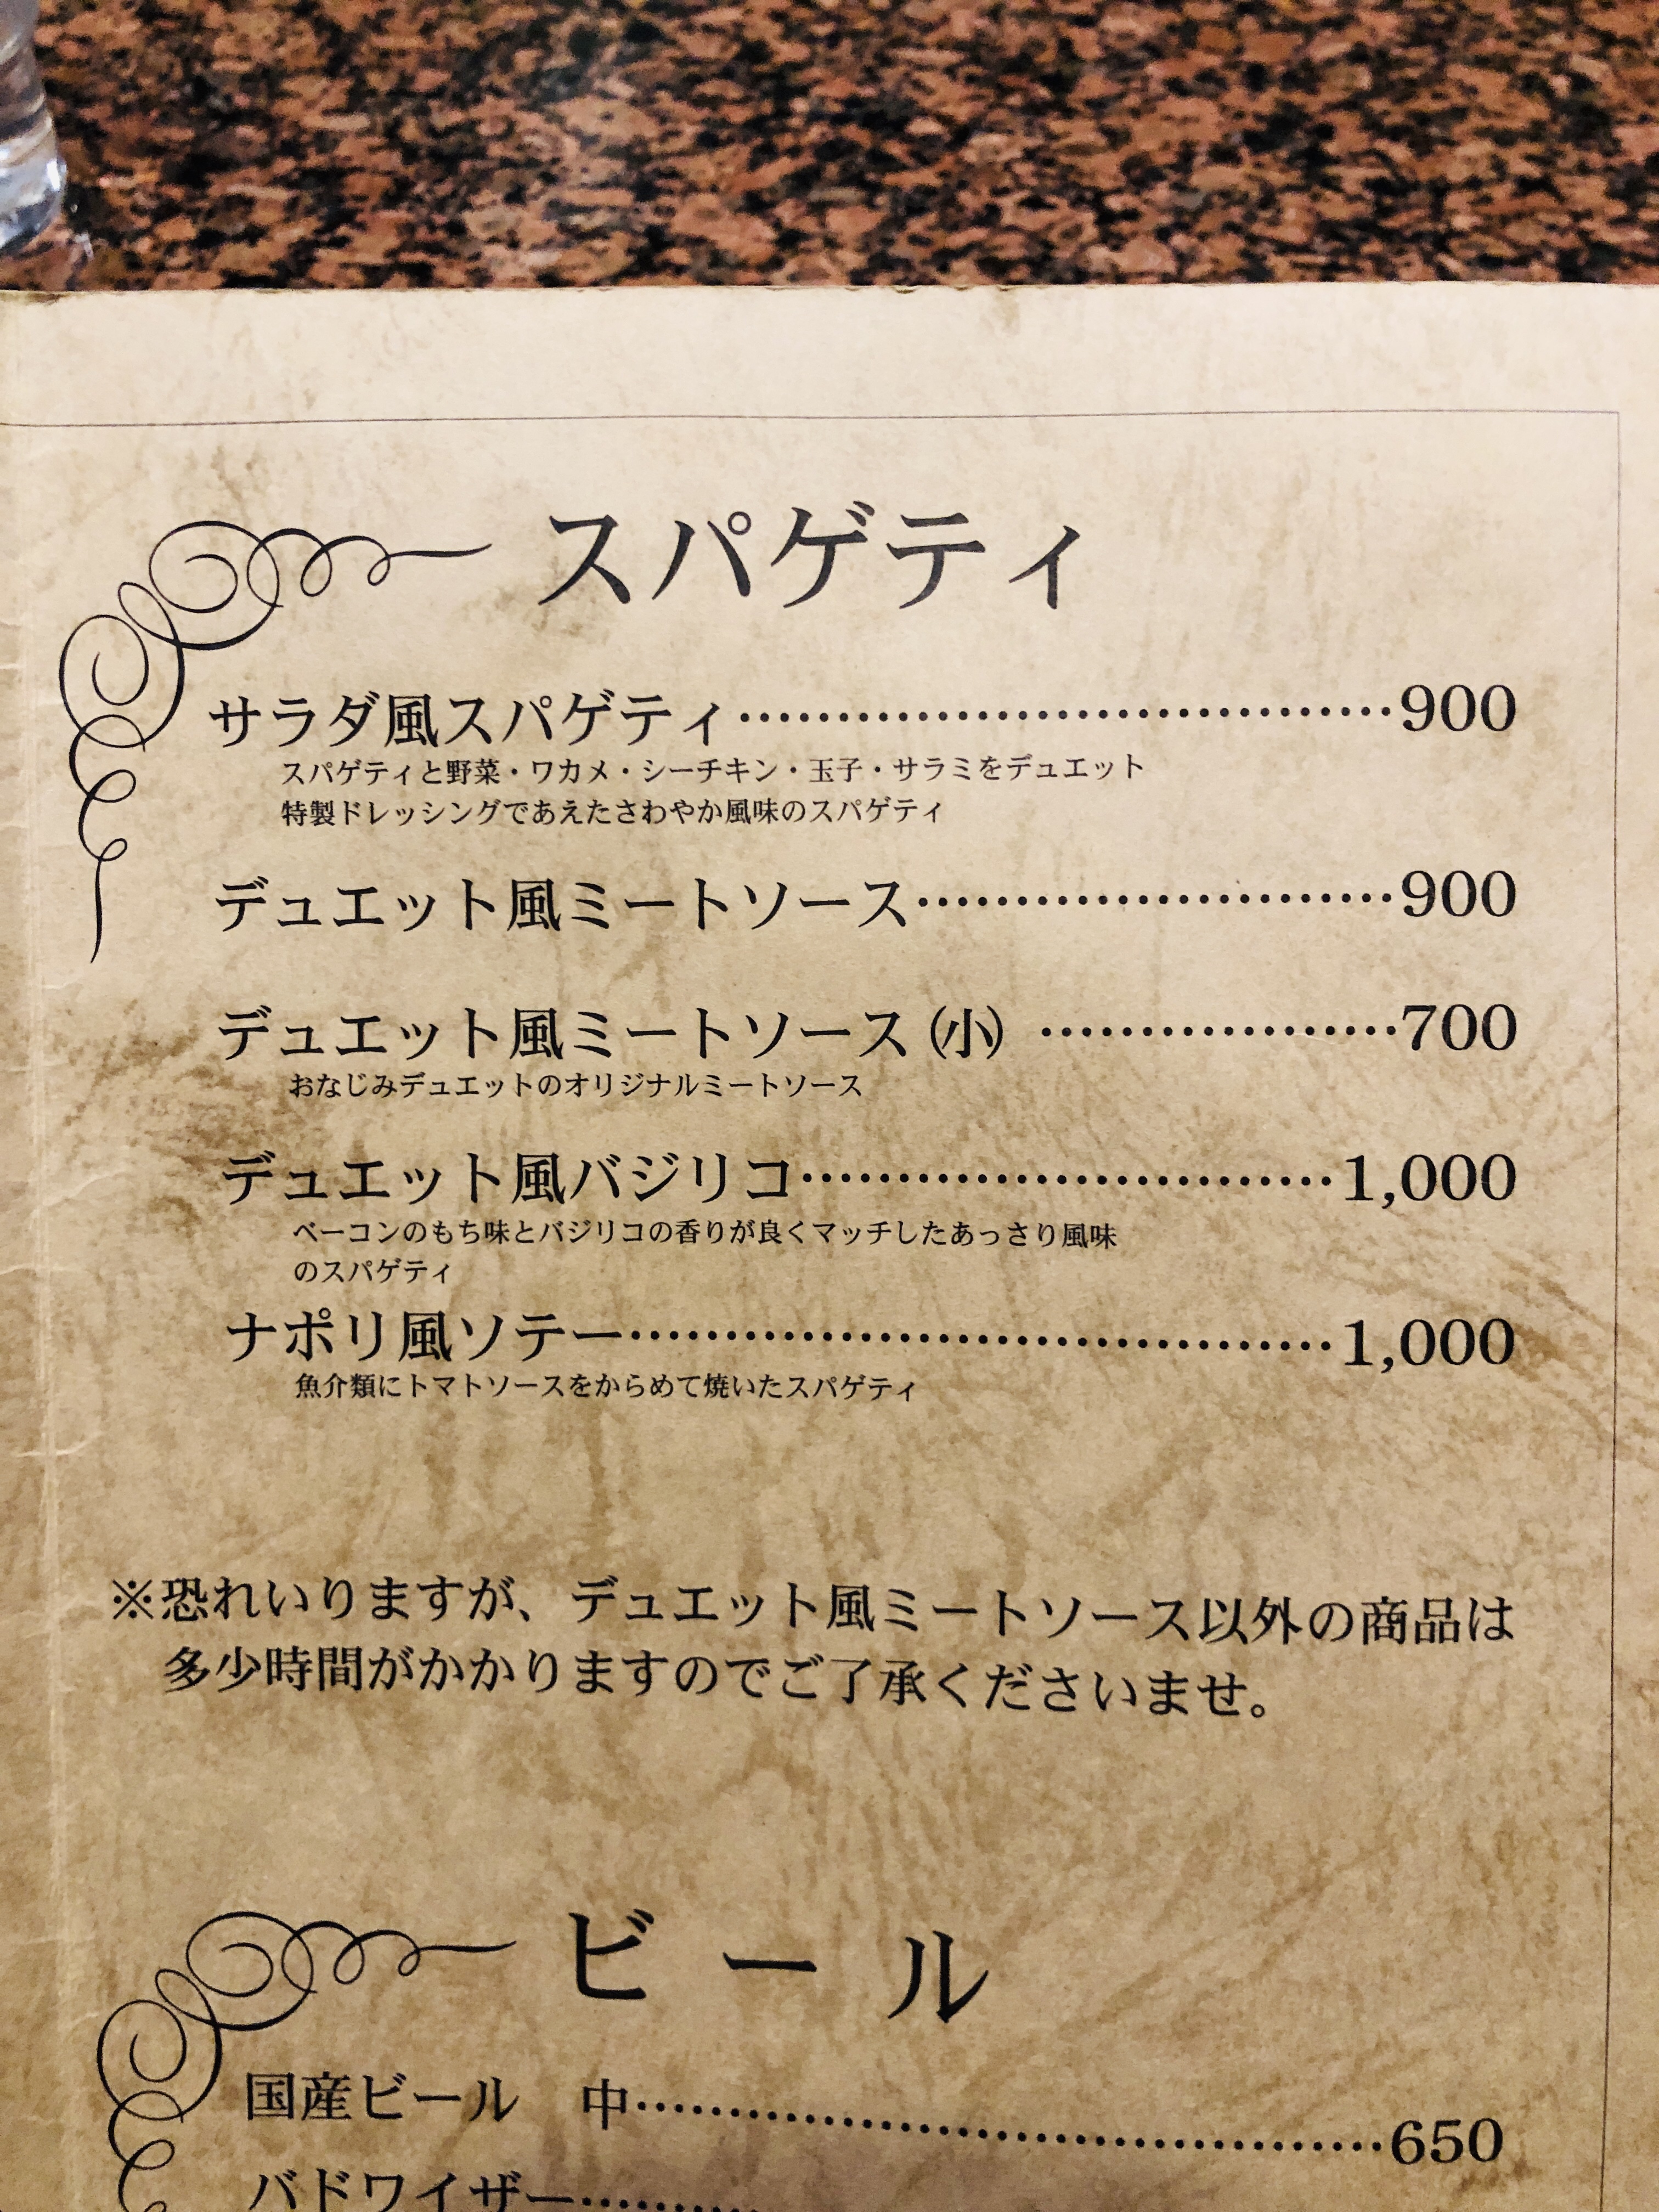 スパゲティ
サラダ風スパゲティ………………………………900
スパゲティと野菜・ワカメ・シーチキン・玉子・サラミをデュエット
特製ドレッシングであえたさわやか風味のスパゲティ
デュエット風ミートソース………………………900
デュエット風ミートソース(小) …………………700
おなじみデュエットのオリジナルミートソース
デュエット風バジリコ…………………………1,000
ベーコンのもち味とバジリコの香りが良くマッチしたあっさり風味
のスパゲティ
ナポリ風ソテー…………………………………1,000
魚介類にトマトソースをからめて焼いたスパゲティ
※恐れいりますが、デュエット風ミートソース以外の商品は
多少時間がかかりますのでご了承くださいませ。
ビール
国産ビール 中……………………………………650
バドワイザー………